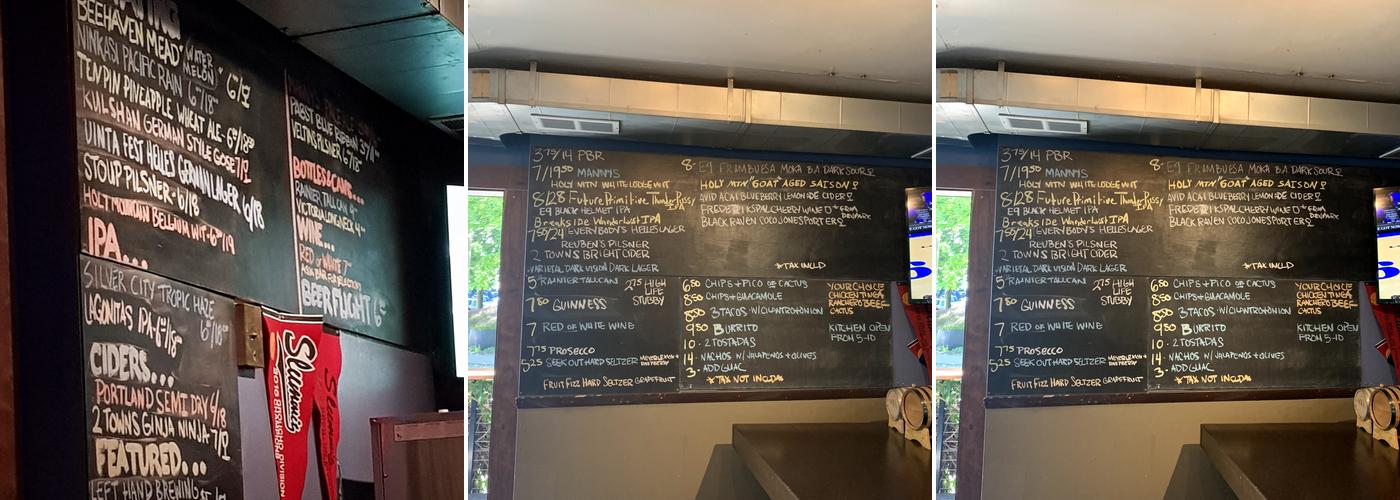 BEEHAVEN MEAD WATER MELON 6/12
NINKASI PACIFIC RAIN 6/18
TENPIN PINEAPPLE WHEAT ALE
KULSHAN GERMAN STYLE GOSE 7/12
UINTA FEST HELLES GERMAN LAGER 6/18
STOUP PILSNER 6/18
HOLY MOUNTAIN BELGIUM WIT 6/19
IPA...
SILVER CITY TROPIC HAZE 6/18
LAGUNITAS IPA 6/18
CIDERS...
PORTLAND SEMI DRY 6/18
2 TOWNS GINJA NINJA 7/12
FEATURED...
LEFT HAND BREWING
PABST BLUE RIBBON
PILSNER 6/18
BOTTLES & CANS...
RAINIER TALL CAN 4
VICTORIA
WINE...
RED OR WHITE 7
BEER FLIGHT
Slammin
3 75/14 PBR
7/19 50 MANNYS
HOLY MTN WHITE LODGE WIT
8/28 Future Primitive Thunder Pussy IPA
E9 BLACK HELMET IPA
Breakside Wanderlust IPA
7 50/24 EVERYBODY'S HELLES LAGER
REUBEN'S PILSNER
2 TOWNS BRIGHT CIDER
VARIETAL DARK VISION DARK LAGER
8- E9 FRAMBUESA MOKA BA DARK SOUR
HOLY MTN "GOAT" AGED SAISON
AVID ACAI BLUEBERRY LEMONADE CIDER
CHERRY WINE FROM DENMARK
BLACK RAVEN COCO JONES PORTER
*TAX INCLD
5 RAINIER TALLCAN
2 75 HIGH LIFE STUBBY
7 50 GUINNESS
7 RED OR WHITE WINE
7 75 PROSECCO
5 25 SEEK OUT HARD SELTZER
FRUIT FIZZ HARD SELTZER GRAPEFRUIT
6 50 CHIPS + PICO OR CACTUS
8 50 CHIPS + GUACAMOLE
3 TACOS W/CILANTRO + ONION
9 50 BURRITO
10- 2 TOSTADAS
14- NACHOS W/ JALAPENOS + OLIVES
3- ADD GUAC
*TAX NOT INCLD*
YOUR CHOICE
CHICKEN TINGA
RANCHERO BEEF
CACTUS
KITCHEN OPEN
FROM 5-10
3 75/14 PBR
7/19 50 MANNYS
HOLY MTN WHITE LODGE WIT
8/28 Future Primitive Thunder Pussy IPA
E9 BLACK HELMET IPA
Breakside Wanderlust IPA
7 50/24 EVERYBODY'S HELLES LAGER
REUBEN'S PILSNER
2 TOWNS BRIGHT CIDER
VARIETAL DARK VISION DARK LAGER
8- E9 FRAMBUESA MOKA BA DARK SOUR
HOLY MTN "GOAT" AGED SAISON
AVID ACAI BLUEBERRY LEMONADE CIDER
CHERRY WINE FROM DENMARK
BLACK RAVEN COCO JONES PORTER
*TAX INCLD
5 RAINIER TALLCAN
2 75 HIGH LIFE STUBBY
7 50 GUINNESS
7 RED OR WHITE WINE
7 75 PROSECCO
5 25 SEEK OUT HARD SELTZER
FRUIT FIZZ HARD SELTZER GRAPEFRUIT
6 50 CHIPS + PICO OR CACTUS
8 50 CHIPS + GUACAMOLE
3 TACOS W/CILANTRO + ONION
9 50 BURRITO
10- 2 TOSTADAS
14- NACHOS W/ JALAPENOS + OLIVES
3- ADD GUAC
*TAX NOT INCLD*
YOUR CHOICE
CHICKEN TINGA
RANCHERO BEEF
CACTUS
KITCHEN OPEN
FROM 5-10